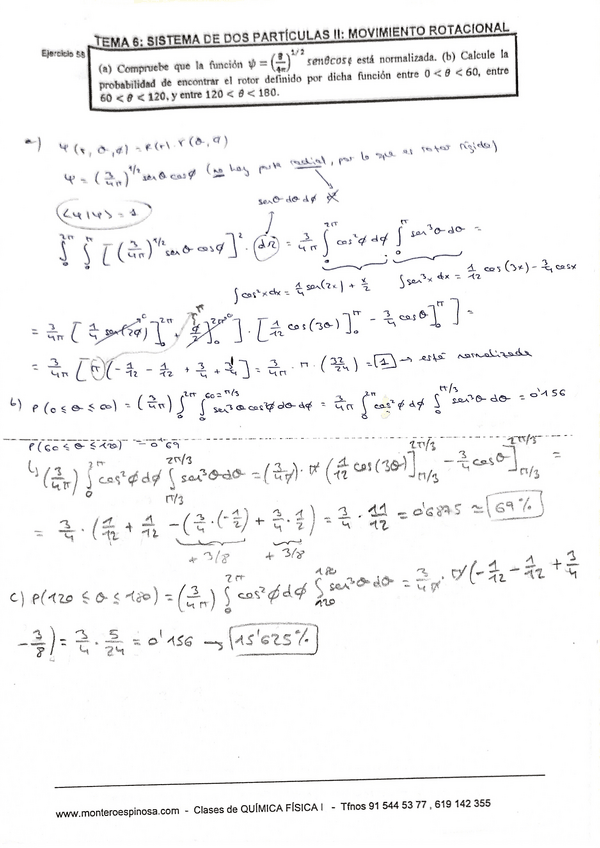 TEMA 6: SISTEMA DE DOS PARTÍCULAS II: MOVIMIENTO ROTACIONAL
Ejercicio 58
(a) Compruebe que la función ψ = (3/4π)^1/2 senθcosφ está normalizada. (b) Calcule la
probabilidad de encontrar el rotor definido por dicha función entre 0 < θ < 60, entre
60 < θ < 120, y entre 120 < θ < 180.
a) ψ(r, θ, φ) = R(r) · Y(θ, φ)
ψ = (3/4π)^1/2 senθ cosφ (no hay parte radial, por lo que es rotor rígido)
senθ dθ dφ
<ψ|ψ> = 1
∫₀^2π ∫₀^π [(3/4π)^1/2 senθ cosφ]² · dΩ = 3/4π ∫₀^2π cos²φ dφ ∫₀^π sen³θ dθ =
∫cos²x dx = 1/4 sen(2x) + x/2 ∫sen³x dx = 1/12 cos(3x) - 3/4 cosx
= 3/4π [1/4 sen(2φ)]₀^2π + φ/2]₀^2π] · [1/12 cos(3θ)]₀^π - 3/4 cosθ]₀^π] =
= 3/4π [π (-1/12 - 1/12 + 3/4 + 3/4] = 3/4π · π · (32/24) = 1 → está normalizada
b) P(0 ≤ θ ≤ 60) = (3/4π) ∫₀^2π ∫₀^60=π/3 sen³θ cos²φ dθ dφ = 3/4π ∫₀^2π cos²φ dφ ∫₀^π/3 sen³θ dθ = 0'156
P(60 ≤ θ ≤ 120) = 0'69
↳ (3/4π) ∫₀^2π cos²φ dφ ∫_π/3^2π/3 sen³θ dθ = (3/4π) · π (1/12 cos(3θ)]_π/3^2π/3 - 3/4 cosθ]_π/3^2π/3 =
= 3/4 · (1/12 + 1/12 - (3/4 · (-1/2) + 3/4 · 1/2) = 3/4 · 11/12 = 0'6875 ≃ 69%
+ 3/8 + 3/8
c) P(120 ≤ θ ≤ 180) = (3/4π) ∫₀^2π cos²φ dφ ∫₁₂₀^180 sen³θ dθ = 3/4π · π (-1/12 - 1/12 + 3/4
- 3/8) = 3/4 · 5/24 = 0'156 → 15'625%
www.monteroespinosa.com - Clases de QUÍMICA FÍSICA I - Tfnos 91 544 53 77 , 619 142 355